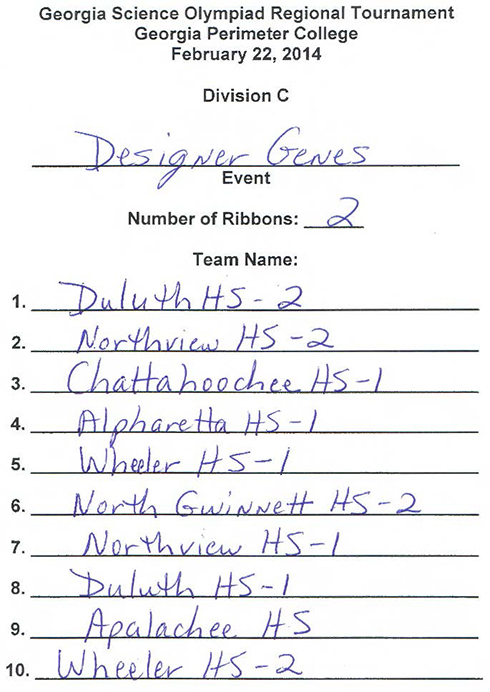 Georgia Science Olympiad Regional Tournament
Georgia Perimeter College
February 22, 2014
Division C
Designer Genes
Event
Number of Ribbons: 2
Team Name:
1. Duluth HS - 2
2. Northview HS - 2
3. Chattahoochee HS - 1
4. Alpharetta HS - 1
5. Wheeler HS - 1
6. North Gwinnett HS - 2
7. Northview HS - 1
8. Duluth HS - 1
9. Apalachee HS
10. Wheeler HS - 2